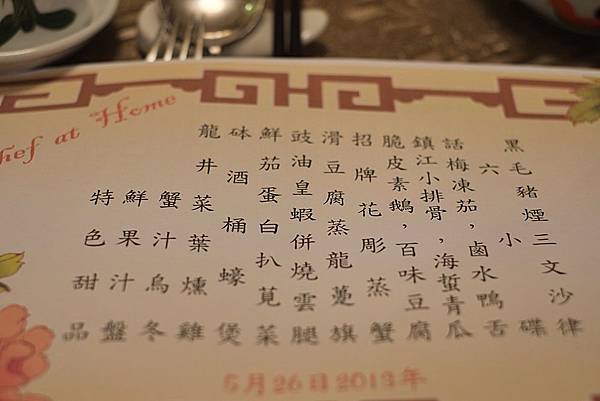 hef at Home
黑毛豬煙三文沙律
六小碟
話梅凍茄，鹵水鴨舌
鎮江小排骨，海蜇青瓜
脆皮素鵝，百味豆腐
招牌花彫蒸蟹
滑豆腐蒸龍躉旗
豉油皇蝦併燒雲腿
鮮茄蛋白扒莧菜
砵酒桶蠔煲
龍井菜葉燻雞
蟹汁烏冬
鮮果汁盤
特色甜品
5月26日2013年